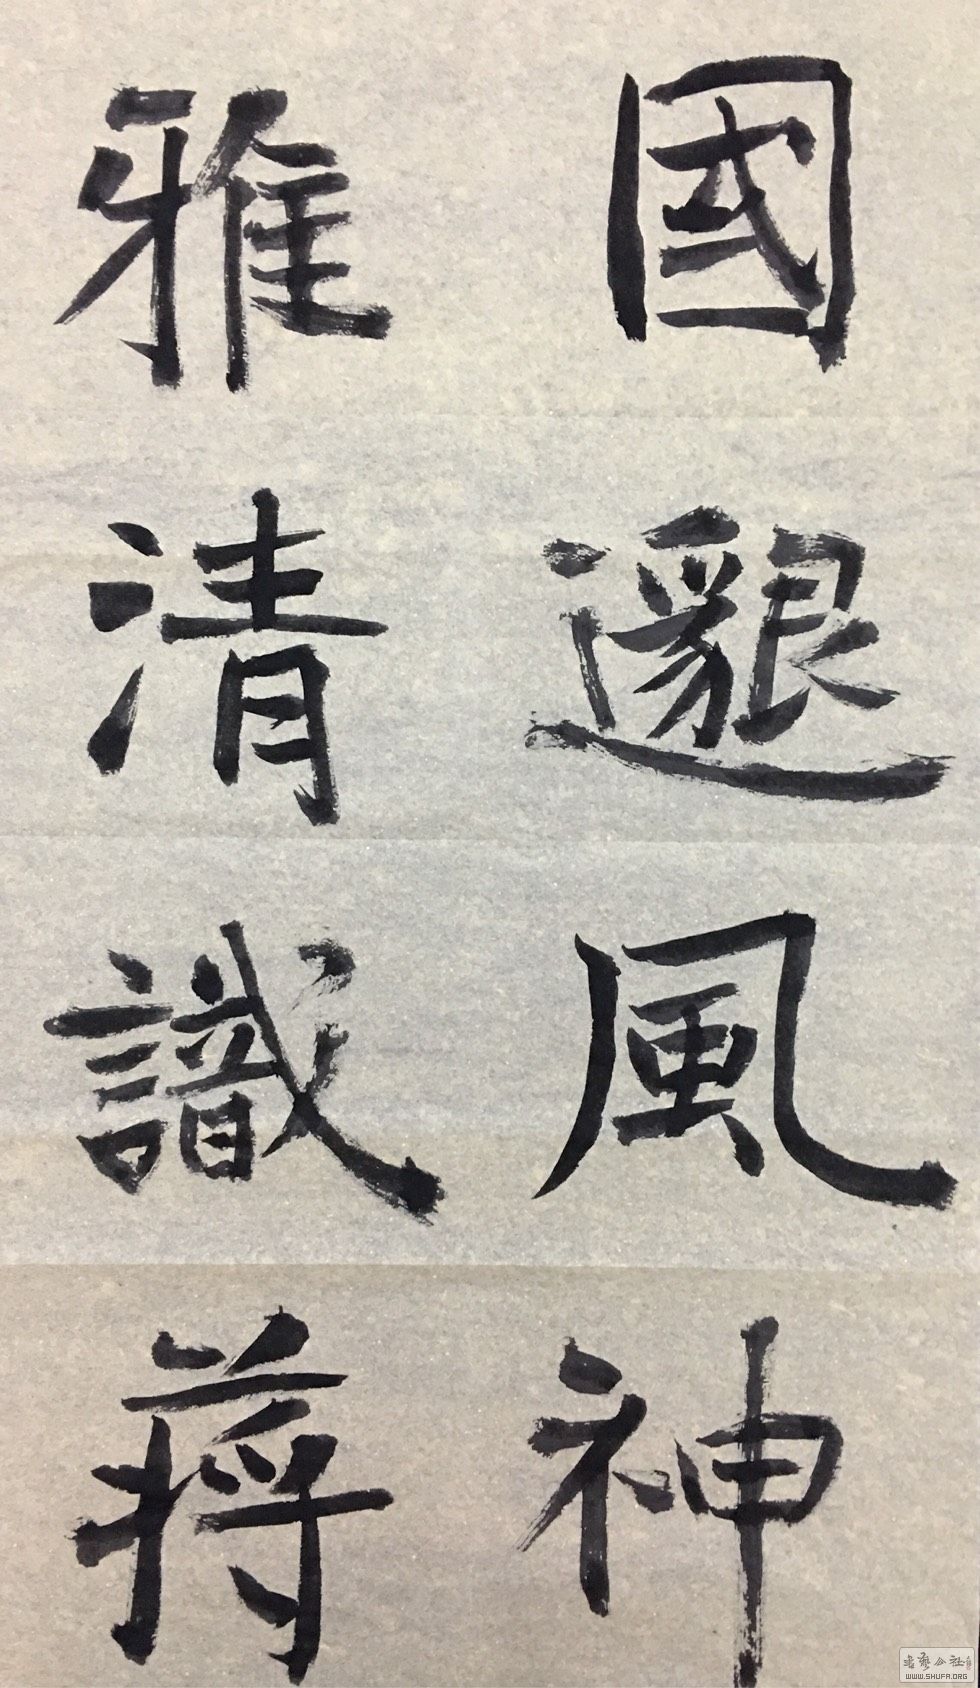 國邈風神
雅清識蔣
書藝公社
WWW.SHUFA.ORG